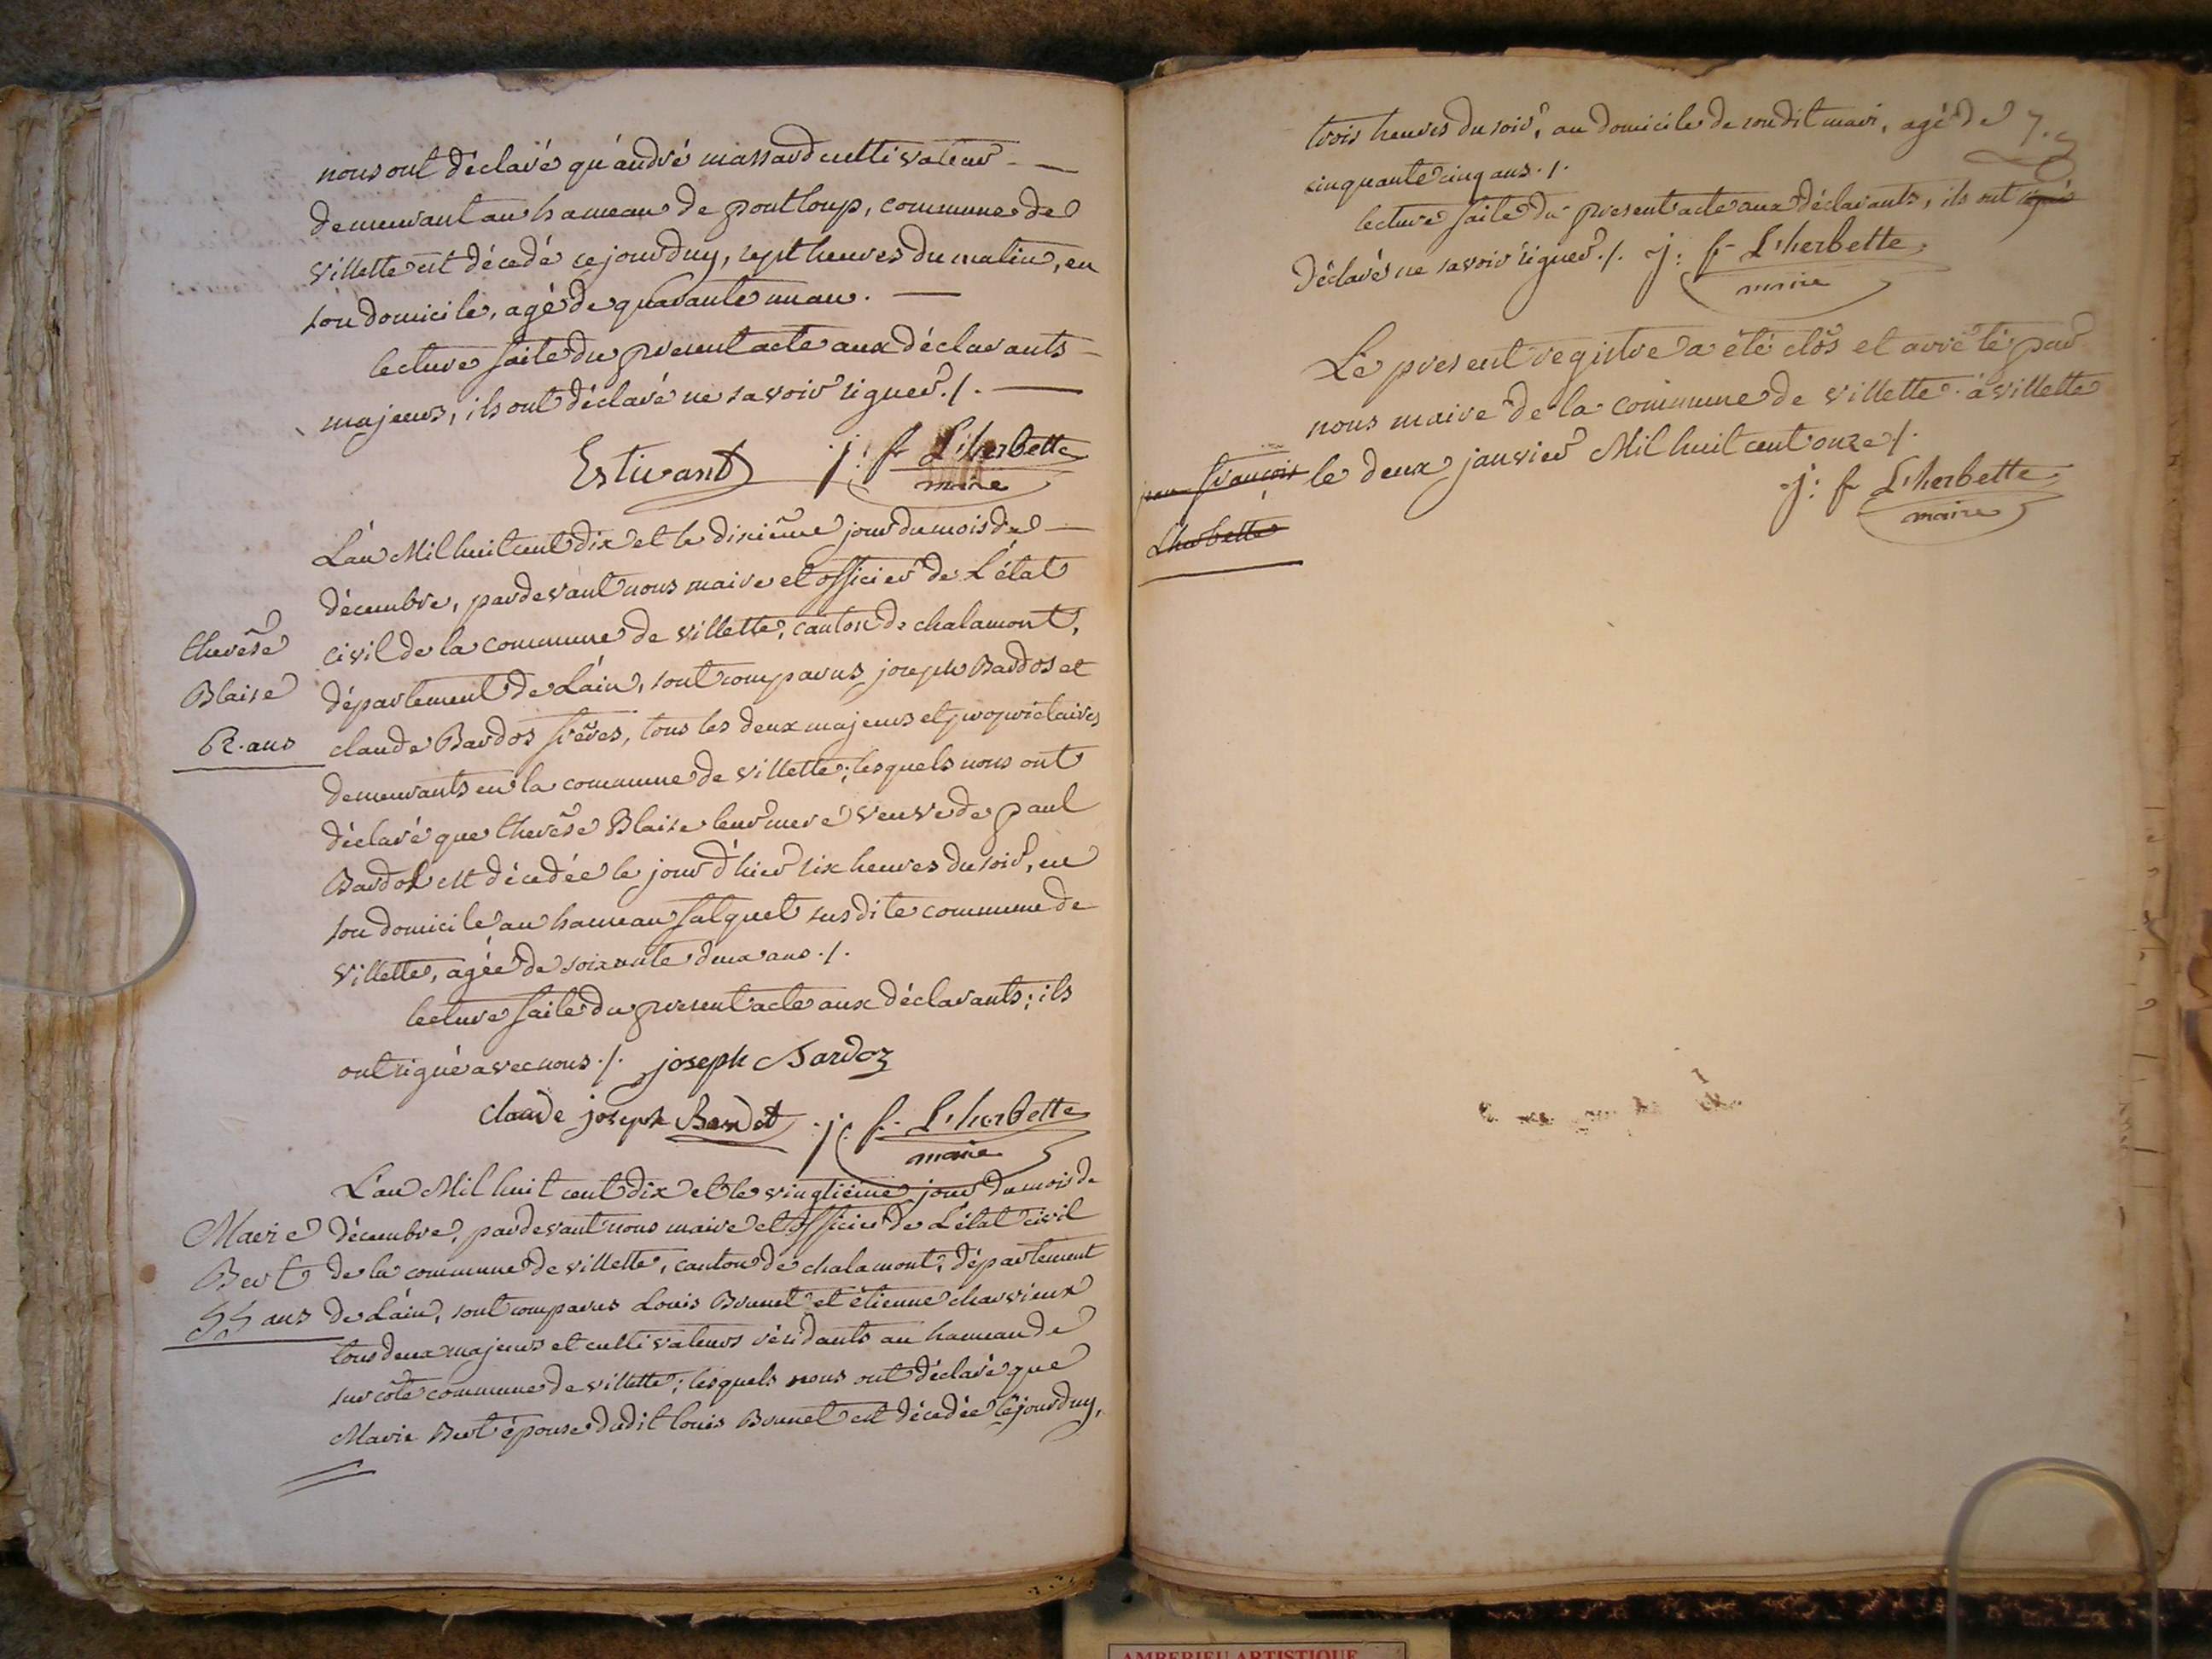 nous ont déclaré qu'andré massard cultivateur
demeurant au hameau de pont loup, commune de
villette est décédé cejourduy, sept heures du matin, en
son domicile, agé de quarante un an.
lecture faite du present acte aux déclarants
majeurs, ils ont déclaré ne savoir signer./.
Estivant j: f L'herbette
maire
L'an Mil huit cent dix et le dixième jour du mois de
décembre, pardevant nous maire et officier de L'état
civil de la commune de villette, canton de chalamont,
département de L'ain, sont comparus joseph Bardos et
claude Bardos frères, tous les deux majeurs et propriétaires
demeurants en la commune de villette; lesquels nous ont
déclaré que therèse Blaise leur mere veuve de paul
Bardos est décédée le jour d'hier six heures du soir, en
son domicile au hameau falquet susdite commune de
villette, agée de soixante deux ans ./.
lecture faite du present acte aux déclarants; ils
ont signé avec nous ./. joseph Bardoz
claude joseph Bardot j: f. L'herbette
maire
therèse
Blaise
62. ans
L'an Mil huit cent dix et le vingtième jour du mois de
décembre, pardevant nous maire et officier de L'état civil
de la commune de villette, canton de chalamont, département
de L'ain, sont comparus Louis Brunet et étienne charvieux
tous deux majeurs et cultivateurs résidants au hameau de
sur côte commune de villette; lesquels nous ont déclaré que
Marie Bert épouse dudit louis Brunet est décédée cejourduy,
Marie
Bert
55 ans
trois heures du soir, au domicile de son dit mari, agé de
cinquante cinq ans ./.
lecture faite du present acte aux déclarants, ils ont
déclarés ne savoir signer ./. j: f L'herbette
maire
Le present registre a été clôs et arrêté par
nous maire de la commune de villette. à villette
le deux janvier Mil huit cent onze ./.
j: f L'herbette
maire
jean françois
Lherbette
AMBERIEU ARTISTIQUE